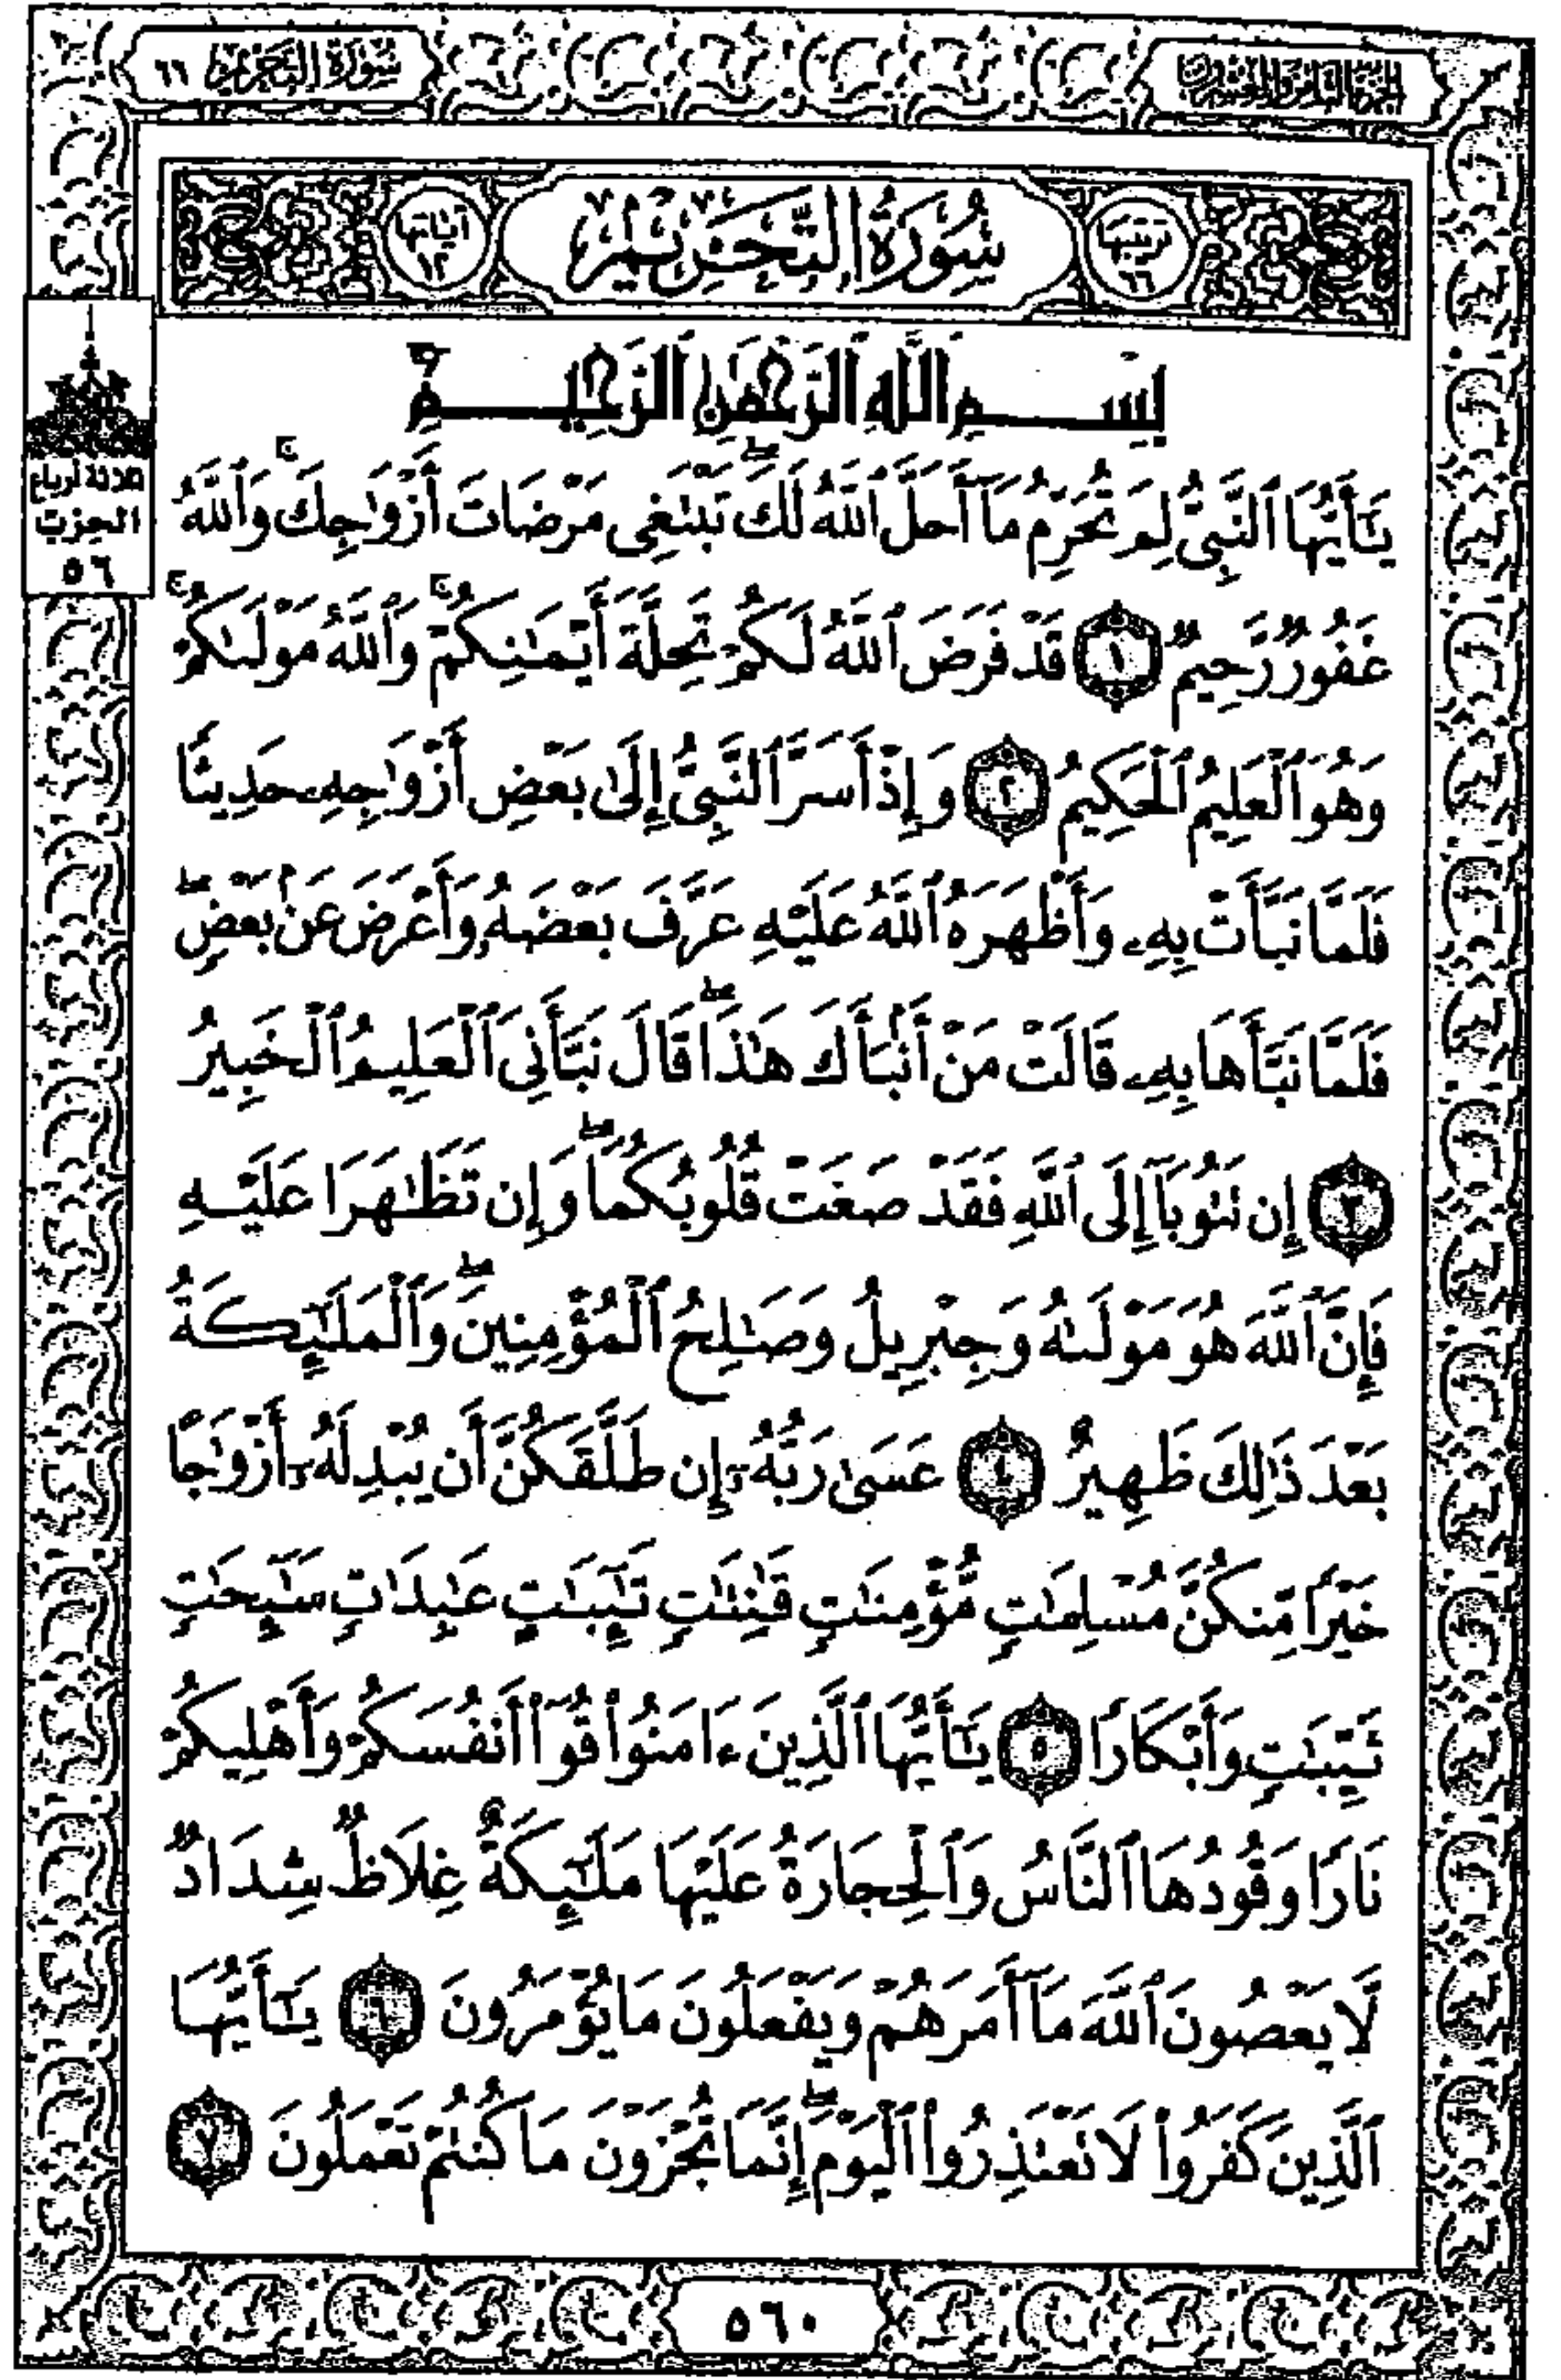 الجزء الثامن والعشرون
سُورَةُ التَّحْرِيم ٦٦
ترتيبها ٦٦
سُورَةُ التَّحْرِيمِ
آياتها ١٢
ثلاثة أرباع
الحزب
٥٦
بِسْمِ ٱللَّهِ ٱلرَّحْمَٰنِ ٱلرَّحِيمِ
يَٰٓأَيُّهَا ٱلنَّبِىُّ لِمَ تُحَرِّمُ مَآ أَحَلَّ ٱللَّهُ لَكَ ۖ تَبْتَغِى مَرْضَاتَ أَزْوَٰجِكَ ۚ وَٱللَّهُ
غَفُورٌ رَّحِيمٌ ١ قَدْ فَرَضَ ٱللَّهُ لَكُمْ تَحِلَّةَ أَيْمَٰنِكُمْ ۚ وَٱللَّهُ مَوْلَىٰكُمْ ۚ
وَهُوَ ٱلْعَلِيمُ ٱلْحَكِيمُ ٢ وَإِذْ أَسَرَّ ٱلنَّبِىُّ إِلَىٰ بَعْضِ أَزْوَٰجِهِۦ حَدِيثًا
فَلَمَّا نَبَّأَتْ بِهِۦ وَأَظْهَرَهُ ٱللَّهُ عَلَيْهِ عَرَّفَ بَعْضَهُۥ وَأَعْرَضَ عَنۢ بَعْضٍ ۖ
فَلَمَّا نَبَّأَهَا بِهِۦ قَالَتْ مَنْ أَنۢبَأَكَ هَٰذَا ۖ قَالَ نَبَّأَنِىَ ٱلْعَلِيمُ ٱلْخَبِيرُ
٣ إِن تَتُوبَآ إِلَى ٱللَّهِ فَقَدْ صَغَتْ قُلُوبُكُمَا ۖ وَإِن تَظَٰهَرَا عَلَيْهِ
فَإِنَّ ٱللَّهَ هُوَ مَوْلَىٰهُ وَجِبْرِيلُ وَصَٰلِحُ ٱلْمُؤْمِنِينَ ۖ وَٱلْمَلَٰٓئِكَةُ
بَعْدَ ذَٰلِكَ ظَهِيرٌ ٤ عَسَىٰ رَبُّهُۥٓ إِن طَلَّقَكُنَّ أَن يُبْدِلَهُۥٓ أَزْوَٰجًا
خَيْرًا مِّنكُنَّ مُسْلِمَٰتٍ مُّؤْمِنَٰتٍ قَٰنِتَٰتٍ تَٰٓئِبَٰتٍ عَٰبِدَٰتٍ سَٰٓئِحَٰتٍ
ثَيِّبَٰتٍ وَأَبْكَارًا ٥ يَٰٓأَيُّهَا ٱلَّذِينَ ءَامَنُوا۟ قُوٓا۟ أَنفُسَكُمْ وَأَهْلِيكُمْ
نَارًا وَقُودُهَا ٱلنَّاسُ وَٱلْحِجَارَةُ عَلَيْهَا مَلَٰٓئِكَةٌ غِلَاظٌ شِدَادٌ
لَّا يَعْصُونَ ٱللَّهَ مَآ أَمَرَهُمْ وَيَفْعَلُونَ مَا يُؤْمَرُونَ ٦ يَٰٓأَيُّهَا
ٱلَّذِينَ كَفَرُوا۟ لَا تَعْتَذِرُوا۟ ٱلْيَوْمَ ۖ إِنَّمَا تُجْزَوْنَ مَا كُنتُمْ تَعْمَلُونَ ٧
٥٦٠